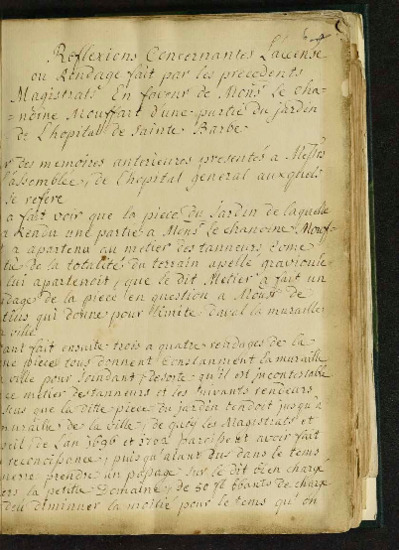 Reflexions Concernantes L'accense
ou Rendage fait par les precedents
Magistrats En faveur de Mons.r le cha=
=noine Mouffart d'une partie du jardin
de L'hopital de Sainte Barbe
des memoires anterieures presentés a Mess.rs
l'assemblée, de l'hopital general auxquels
se refere
a fait voir que la piece du Jardin de laquelle
a Rendu une partie a Mons.r le chanoine Mouf
a apartenu au metier des tanneurs, come
de la totalité du terrain apellé gravioule
lui apartenoit, que le dit Metier a fait un
de la piece en question a Mons.r de
qui donne pour limite d'aval la muraille
ville
fait ensuite trois a quatre rendages de la
piece tous donnent constamment la muraille
ville pour joindant, desorte qu'il est incontestable
ce metier des tanneurs et les suivants rendeurs
que la ditte piece du jardin tendoit jusqu'a
muraille de la ville, de quoy les Magistrats et
de L'an 1696 et 1702 paroissent avoir fait
reconoissance, puis qu'aiant dus dans le tems
prendre un passage sur le dit bien chargé
la petite Domaine, de 50 fl bbants de charge
deu diminuer la moitié pour le tems qu'on